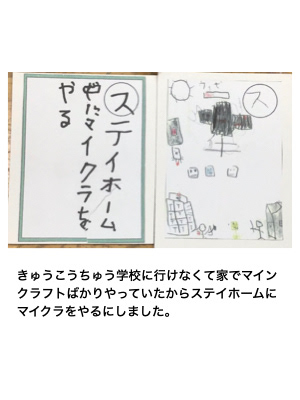 ステイホーム
中にマイクラを
やる
ス
きゅうこうちゅう学校に行けなくて家でマイン
クラフトばかりやっていたからステイホームに
マイクラをやるにしました。